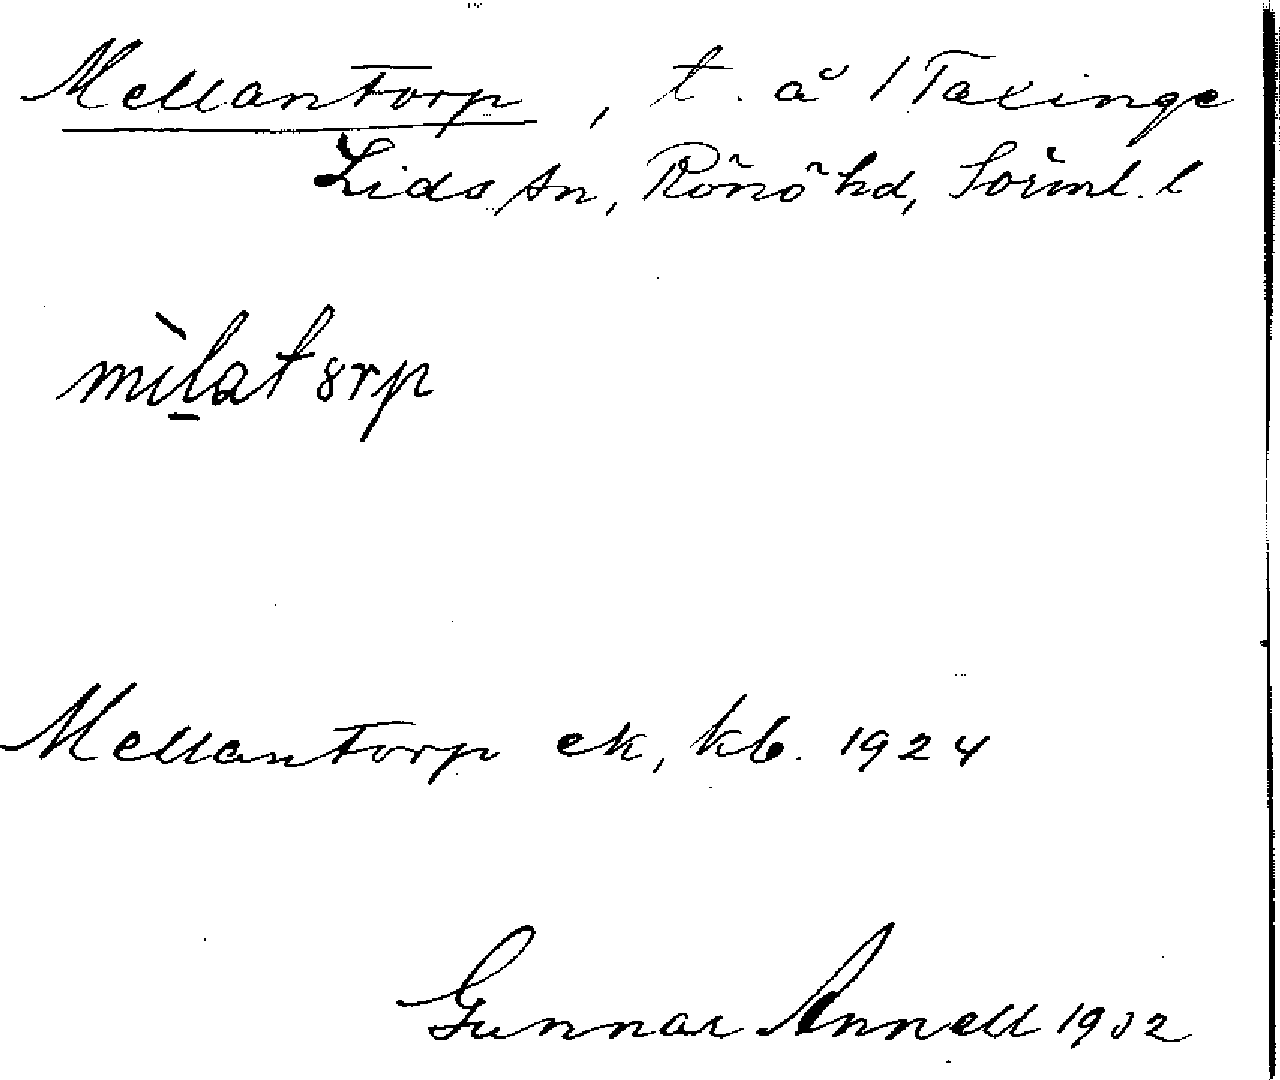 Mellantorp, t. å 1 Taxinge
Lids sn, Rönö hd, Sörml. l
mìlatorp
Mellantorp ek, kb. 1924
Gunnar Annell 1932